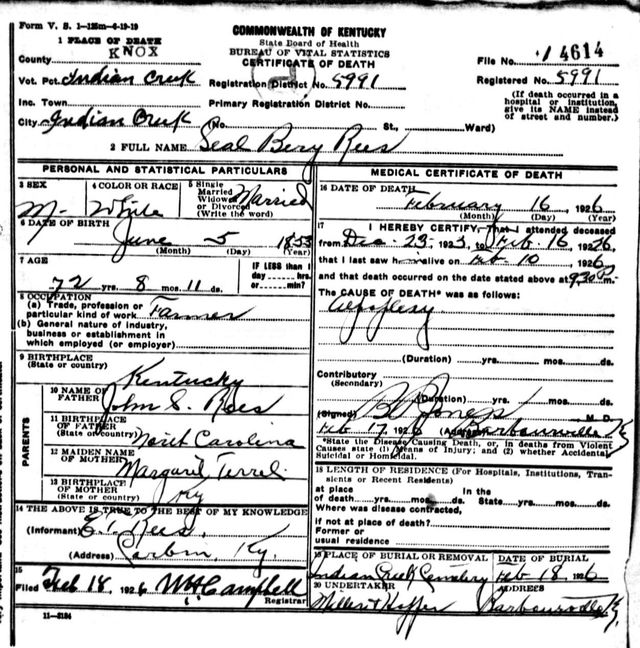 Form V. S. 1—125m—6-19-19
COMMONWEALTH OF KENTUCKY
State Board of Health
BUREAU OF VITAL STATISTICS
CERTIFICATE OF DEATH
1 PLACE OF DEATH
County KNOX
File No. 14614
Vot. Pct. Indian Creek
Registration District No. 5991
Registered No. 5991
Inc. Town
Primary Registration District No.
(If death occurred in a hospital or institution, give its NAME instead of street and number.)
City Indian Creek (No. St., Ward)
2 FULL NAME Seal Bery Rees
PERSONAL AND STATISTICAL PARTICULARS
3 SEX M-
4 COLOR OR RACE White
5 Single Married Widowed or Divorced (Write the word) Married
6 DATE OF BIRTH June 5 1853
(Month) (Day) (Year)
7 AGE 72 yrs. 8 mos. 11 ds.
IF LESS than 1 day hrs. or min.
8 OCCUPATION
(a) Trade, profession or particular kind of work Farmer
(b) General nature of industry, business or establishment in which employed (or employer)
9 BIRTHPLACE (State or country) Kentucky
PARENTS
10 NAME OF FATHER John S. Rees
11 BIRTHPLACE OF FATHER (State or country) North Carolina
12 MAIDEN NAME OF MOTHER Margaret Terrel
13 BIRTHPLACE OF MOTHER (State or country) Ky
14 THE ABOVE IS TRUE TO THE BEST OF MY KNOWLEDGE
(Informant) Rees
(Address) Corbin, Ky.
15
Filed Feb 18, 1926 Campbell
Registrar
11—3184
MEDICAL CERTIFICATE OF DEATH
16 DATE OF DEATH February 16, 1926
(Month) (Day) (Year)
17 I HEREBY CERTIFY, That I attended deceased
from Dec. 23 1923, to Feb. 16 1926,
that I last saw h alive on Feb 10, 1926
and that death occurred on the date stated above at 9:30 P.m.
The CAUSE OF DEATH* was as follows:
(Duration) yrs. mos. ds.
Contributory (Secondary)
(Duration) yrs. mos. ds.
(Signed) Jones M. D.
Feb 17, 1926 (Address) Barbourville Ky
*State the Disease Causing Death, or, in deaths from Violent Causes state (1) Means of Injury; and (2) whether Accidental, Suicidal or Homicidal.
18 LENGTH OF RESIDENCE (For Hospitals, Institutions, Transients or Recent Residents)
at place of death yrs. mos. ds.
In the State yrs. mos. ds.
Where was disease contracted,
if not at place of death?
Former or usual residence
19 PLACE OF BURIAL OR REMOVAL
DATE OF BURIAL
Indian Creek Cemetery Feb 18, 1926
20 UNDERTAKER
ADDRESS
Barbourville Ky.